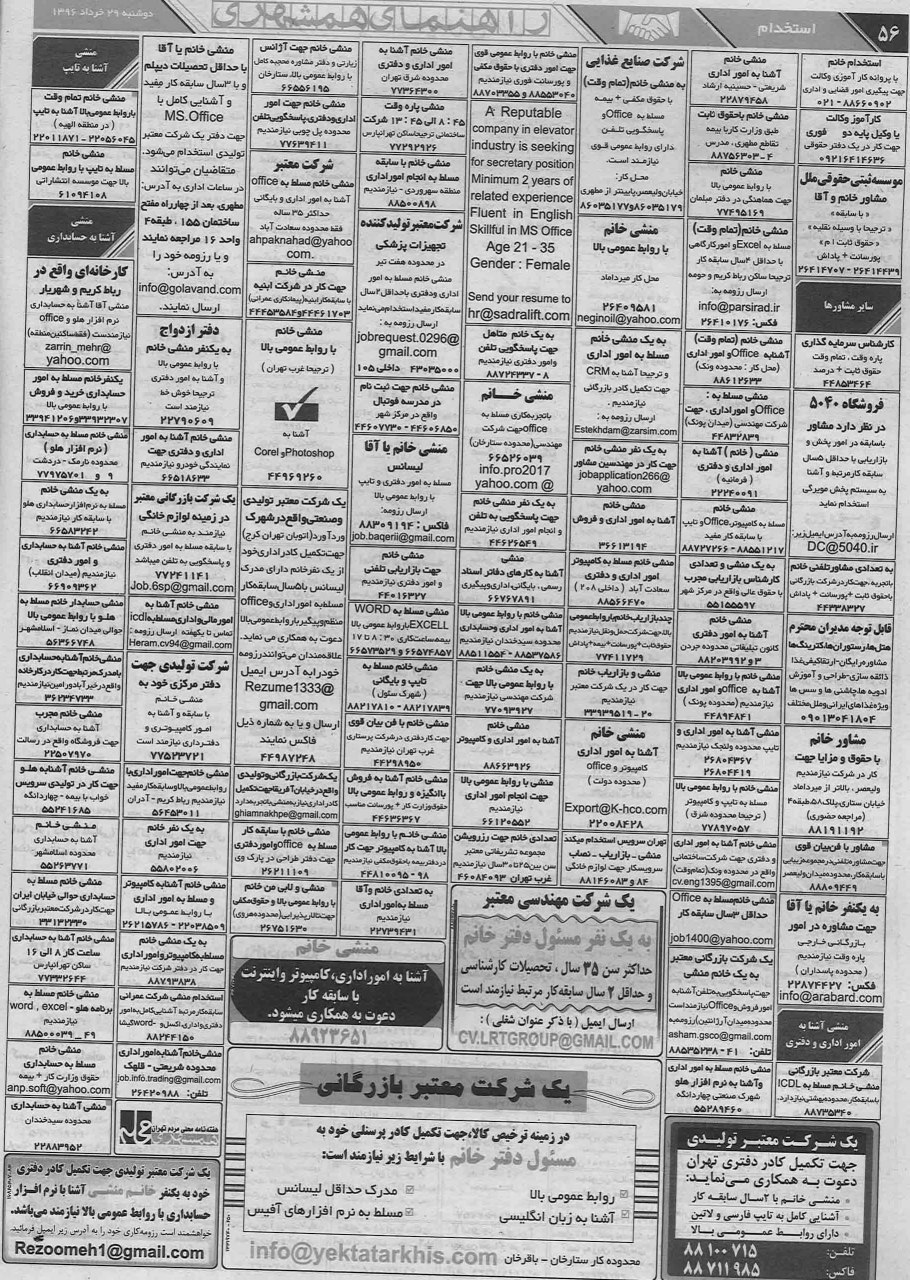 ۵۶
استخدام
راهنمای همشهری
دوشنبه ۲۹ خرداد ۱۳۹۶
استخدام خانم
با پروانه کار آموزی وکالت
جهت پیگیری امور قضایی و اداری
۰۲۱-۸۸۶۶۰۹۰۲
کارآموز وکالت
یا وکیل پایه دو فوری
جهت کار در یک دفتر حقوقی
۰۹۲۱۶۴۱۴۶۳۶
موسسه ثبتی حقوقی ملل
مشاور خانم و آقا
« با سابقه »
« ترجیحا با وسیله نقلیه »
« حقوق ثابت ۱م »
پورسانت + پاداش
۲۶۴۱۴۷۰۷ - ۲۶۴۱۴۴۳۹
سایر مشاورها
کارشناس سرمایه گذاری
پاره وقت، تمام وقت
حقوق ثابت + درصد
۴۴۸۵۳۴۶۴
فروشگاه ۵۰۴۰
در نظر دارد مشاور
باسابقه در امور پخش و
بازاریابی با حداقل ۵سال
سابقه کارمرتبط و آشنا
به سیستم پخش مویرگی
استخدام نماید
ارسال رزومه به آدرس ایمیل زیر:
DC@5040.ir
به تعدادی مشاورتلفنی خانم
باتجربه،جهت کاردرشرکت بازرگانی
حقوق ثابت+پورسانت + پاداش
۴۴۳۳۸۳۲۷
قابل توجه مدیران محترم
هتل‌ها،رستوران‌ها،کترینگ‌ها
مشاوره رایگان-ارتقاکیفی غذا
ذائقه سازی-طراحی و آموزش
ادویه ها،چاشنی ها و سس ها
ویژه غذاهای ایرانی وملل مختلف
۰۹۰۱۳۰۴۱۸۰۴
مشاور خانم
با حقوق و مزایا جهت
کار در شرکت نیازمندیم
ولیعصر، بالاتر از میرداماد
خیابان ستاری،پلاک۵۸،طبقه۴
(مراجعه حضوری)
۸۸۱۹۱۱۹۲
مشاور با فن بیان قوی
جهت مشاوره تلفنی در مجموعه زیبایی
با سابقه کار،محدوده میدان ولیعصر
۸۸۸۰۹۴۴۹
به یکنفر خانم یا آقا
جهت مشاوره در امور
بازرگانی خارجی
پاره وقت نیازمندیم
( محدوده پاسداران )
فکس: ۲۲۸۷۴۴۲۷
info@arabard.com
منشی آشنا به
امور اداری و دفتری
شرکت معتبر بازرگانی
منشی خانم مسلط به ICDL
جهت کاردرشرکت،محدوده بهشتی نیازدارد.
۸۸۷۳۵۳۴۰
منشی خانم
آشنا به امور اداری
شریعتی - حسینیه ارشاد
۲۲۸۷۹۴۵۸
منشی خانم باحقوق ثابت
طبق وزارت کار با بیمه
تقاطع مطهری، مدرس
۸۸۷۵۶۳۰۳-۴
منشی خانم
آشنا به امور اداری
با روابط عمومی بالا
جهت هماهنگی در دفتر مبلمان
۷۷۴۹۵۱۶۹
منشی خانم(تمام وقت)
مسلط به Excelو امورکارگاهی
با حداقل ۴سال سابقه کار
ترجیحا ساکن رباط کریم و حومه
ارسال رزومه به:
info@parsirad.ir
فکس: ۲۶۴۱۰۱۷۶
منشی خانم (تمام وقت)
آشنابه Officeو امور اداری
(محل کار : محدوده ونک)
۸۸۶۱۲۶۳۳
منشی مسلط به :
Officeو امور اداری . جهت
شرکت مهندسی (میدان پونک)
۴۴۸۳۲۸۳۹
منشی ( خانم ) آشنا به
امور اداری و دفتری
( فرمانیه )
۲۲۲۴۰۰۹۱
منشی خانم
مسلط به کامپیوتر،Officeو تایپ
با سابقه کار مفید
۸۸۷۲۷۲۶۶ - ۸۸۵۵۱۲۱۷
به یک منشی و تعدادی
کارشناس بازاریابی مجرب
با حقوق عالی واقع در مرکز شهر
۵۵۱۵۵۵۹۷
منشی خانم
آشنا به امور اداری
کانون تبلیغاتی محدوده جردن
۸۸۲۰۳۹۹۲ و ۳
منشی خانم
آشنا به officeو امور اداری
نیازمندیم (محدوده پونک)
۴۴۸۹۴۸۴۱
منشی آشنا به امور اداری و
تایپ محدوده ولنجک نیازمندیم
۲۶۸۰۴۳۶۷
۲۶۸۰۴۴۱۹
منشی خانم
مسلط به تایپ و کامپیوتر
( ترجیحا محدوده شرق )
۷۷۸۹۷۰۵۷
منشی خانم آشنا به امور اداری
و دفتری جهت شرکت ساختمانی
واقع در محدوده ونک(تمام وقت)
cv.eng1395@gmail.com
منشی خانم،مسلط به Office
حداقل ۳سال سابقه کار
job1400@yahoo.com
یک شرکت بازرگانی معتبر
به یک خانم منشی
جهت پاسخگویی به تلفن آشنابه
امورفروش وOfficeنیازمنداست
(محدوده میدان آرژانتین)درروزه به
asham.gsco@gmail.com
تلفن: ۴۱ - ۸۸۵۳۵۲۳۸
منشی خانم مسلط به امور اداری
وآشنا به نرم افزار هلو
شهرک صنعتی چهاردانگه
۵۵۲۸۹۴۶۰
یک شرکت معتبر تولیدی
جهت تکمیل کادر دفتری تهران
دعوت به همکاری می‌نماید:
منشی خانم با ۲سال سابقه کار
آشنایی کامل به تایپ فارسی و لاتین
دارای روابط عمومی بالا
تلفن: ۸۸۱۰۰۷۱۵
فاکس: ۸۸۷۱۱۹۸۵
شرکت صنایع غذایی
به منشی خانم(تمام وقت)
با حقوق مکفی + بیمه
مسلط به Officeو
پاسخگویی تلفن
دارای روابط عمومی قوی
نیازمند است.
محل کار:
خیابان ولیعصر،پایینتر از مطهری
۸۶۰۳۵۱۷۹و۸۶۰۳۵۱۷۷
منشی خانم
با روابط عمومی بالا
محل کار میرداماد
۲۶۴۰۹۵۸۱
neginoil@yahoo.com
به یک منشی خانم
مسلط به امور اداری office
و ترجیحا آشنا به CRM
جهت تکمیل کادر بازرگانی
نیازمندیم.
ارسال رزومه به:
Estekhdam@zarsim.com
به یک منشی خانم
جهت کار در مهندسین مشاور
jobapplication266@
yahoo.com
منشی خانم
آشنا به امور اداری و فروش
۳۶۶۱۳۱۹۴
منشی خانم مسلط به کامپیوتر
امور اداری و دفتری
سعادت آباد ( داخلی ۲۰۸ )
۸۸۵۶۶۴۷۰
چندبازاریاب خانم،باروابط عمومی
بالا،جهت شرکت حمل ونقل نیازمندیم
حقوق ثابت+پورسانت+بیمه+پاداش
۷۷۴۱۱۷۲۹
منشی و بازاریاب خانم
جهت کار در یک شرکت معتبر
۳۳۹۳۹۵۱۹-۲۰
منشی خانم
آشنا به امور اداری
کامپیوتر و office
( محدوده دولت )
Export@K-hco.com
۲۲۰۰۸۴۲۸
تهران سرویس استخدام میکند
منشی - بازاریاب - نصاب
سرویسکار جهت لوازم خانگی
۸۸۱۴۶۰۸۳ و ۸۴
یک شرکت مهندسی معتبر
به یک نفر مسئول دفتر خانم
حداکثر سن ۳۵ سال ، تحصیلات کارشناسی
و حداقل ۲ سال سابقه کار مرتبط نیازمند است
ارسال ایمیل ( با ذکر عنوان شغلی ) :
CV.LRTGROUP@GMAIL.COM
منشی خانم با روابط عمومی قوی
جهت امور دفتری با حقوق مکفی
و پورسانت فوری نیازمندیم
۸۸۷۰۳۳۵۵ و ۸۸۵۵۳۰۴۰
A Reputable
company in elevator
industry is seeking
for secretary position
Minimum 2 years of
related experience
Fluent in English
Skillful in MS Office
Age 21 - 35
Gender : Female
Send your resume to
hr@sadralift.com
به یک خانم متاهل
جهت پاسخگویی تلفن
و امور دفتری نیازمندیم
۸۸۷۲۴۳۳۷-۸
منشی خانم
باتجربه‌کاری مسلط به
officeجهت شرکت
مهندسی(محدوده ستارخان)
۶۶۵۲۶۰۳۹
info.pro2017
yahoo.com @
به یک نفر منشی خانم
جهت پاسخگویی به تلفن
و انجام امور اداری نیازمندیم
۴۴۶۲۶۵۴۹
منشی خانم
آشنا به کارهای دفاتر اسناد
رسمی، بایگانی،اداری وپیگیری
۶۶۷۶۷۸۹۱
منشی خانم با روابط عمومی بالا
آشنا به امور اداری وحسابداری
محدوده سیدخندان نیازمندیم
۸۸۵۱۱۵۵۴ - ۸۸۵۳۷۵۸۶
به یک منشی خانم
با روابط عمومی بالا جهت
شرکت مهندسی نیازمندیم
۷۷۰۹۳۹۲۷
منشی خانم
آشنا به امور اداری و کامپیوتر
۸۸۶۶۳۹۲۶
منشی با روابط عمومی بالا
جهت انجام امور اداری
نیازمندیم
۶۶۱۲۰۵۵۲
تعدادی خانم جهت رزرویشن
مجموعه تشریفاتی معتبر
سن بین۲۵تا ۳۰سال نیازمندیم
غرب تهران ۴۶۰۸۴۰۹۳
منشی خانم آشنا به
امور اداری و دفتری
محدوده شرق تهران
۷۷۳۶۴۳۰۰
منشی پاره وقت
۸:۴۵ الی ۱۳:۴۵
ساختمانی ترجیحاساکن تهرانپارس
۷۷۲۹۲۹۲۶
منشی خانم با سابقه
مسلط به انجام امور اداری
منطقه سهروردی - نیازمندیم
۸۸۵۰۰۸۹۸
شرکت معتبر تولیدکننده
تجهیزات پزشکی
در محدوده هفت تیر
منشی خانم مسلط به امور
اداری ودفتری باحداقل۲سال
سابقه کار مفید استخدام می‌نماید
ارسال رزومه به:
jobrequest.0296@
gmail.com
۴۳۰۳۵۰۰۰ داخلی ۱۰۵
منشی خانم جهت ثبت نام
در مدرسه فوتبال
واقع در مرکز شهر
۴۴۶۰۷۷۳۰ - ۴۴۶۰۶۸۵۰
منشی خانم یا آقا
لیسانس
مسلط به امور دفتری و تایپ
با روابط عمومی بالا
فاکس: ۸۸۳۰۹۱۹۴
job.baqerii@gmail.com
منشی خانم
جهت بازاریابی تلفنی
۴۴۰۱۶۳۲۷
منشی مسلط به WORD
EXCELLباروابط عمومی بالا
بیمه ساعت کاری ۸:۳۰ تا ۱۷
۶۶۵۷۴۸۵۷ و ۶۶۵۷۳۵۲۹
منشی خانم مسلط به
تایپ و بایگانی
( شهرک سئول )
۸۸۲۱۷۸۳۹ - ۸۸۲۱۷۸۱۰
منشی خانم با فن بیان قوی
جهت کاردفتری درشرکت پرستاری
غرب تهران نیازمندیم
۴۴۲۹۸۹۵۰
منشی خانم آشنا به فروش
باانگیزه و روابط عمومی بالا
حقوق وزارت کار + پورسانت مناسب
۴۴۶۳۶۳۶۷
منشی خانم با روابط عمومی
بالا آشنا به کامپیوتر جهت کار
دردفتر بیمه باحقوق مکفی نیازمندیم
۹۸ - ۴۴۸۱۰۰۹۵
به تعدادی خانم وآقا
مسلط به امور اداری
نیازمندیم
۲۲۷۳۹۴۳۱
منشی خانم
آشنا به امور اداری، کامپیوتر و اینترنت
با سابقه کار
دعوت به همکاری میشود.
۸۸۹۲۳۶۵۱
یک شرکت معتبر بازرگانی
در زمینه ترخیص کالا،جهت تکمیل کادر پرسنلی خود به
مسئول دفتر خانم با شرایط زیر نیازمند است:
روابط عمومی بالا
مدرک حداقل لیسانس
آشنا به زبان انگلیسی
مسلط به نرم افزارهای آفیس
محدوده کار ستارخان - باقرخان
info@yektatarkhis.com
منشی خانم جهت آژانس
زیارتی و دفتر مشاوره محجبه کامل
با روابط عمومی بالا، ستارخان
۶۶۵۵۶۱۹۵
منشی خانم جهت امور
اداری ودفتری،پاسخگویی تلفن
محدوده پل چوبی نیازمندیم
۷۷۶۳۹۴۱۱
شرکت معتبر
منشی خانم مسلط به office
آشنا به امور اداری و بایگانی
حداکثر ۳۵ ساله
فقط محدوده سعادت آباد
ahpaknahad@yahoo
com.
منشی خانم
جهت کار در شرکت ابنیه
با سابقه کارابنیه(پیمانکاری عمرانی)
۴۴۴۶۱۷۰۳و۴۴۴۵۳۵۸۴
منشی خانم
با روابط عمومی بالا
( ترجیحا غرب تهران )
آشنا به
Photoshopو Corel
۴۴۹۶۹۲۶۰
یک شرکت معتبر تولیدی
وصنعتی واقع درشهرک
وردآورد(اتوبان تهران کرج)
جهت‌تکمیل‌کادراداری‌خود
از یک نفرخانم دارای مدرک
لیسانس با۵سال سابقه کار
مسلط به اموراداری وoffice
منظم وپیگیر،باروابط عمومی بالا
دعوت به همکاری می نماید.
علاقه مندان می توانند رزومه
خود را به آدرس ایمیل
Rezume1333@
gmail.com
ارسال و یا به شماره ذیل
فاکس نمایند
۴۴۹۸۷۲۴۸
یک شرکت بازرگانی وتولیدی
واقع درخیابان آفریقاجهت تکمیل
کادراداری نیاز به منشی باتجربه دارد
ghiamnakhpe@gmail.com
منشی خانم با سابقه کار
مسلط به officeوامور دفتری
جهت دفتر طراحی در پارک وی
۲۶۲۱۱۱۰۹
منشی و لابی من خانم
با روابط عمومی بالا و حقوق مکفی
جهت تالارپذیرایی(محدوده هروی)
۲۶۷۵۱۶۳۰
منشی خانم یا آقا
با حداقل تحصیلات دیپلم
و با ۳سال سابقه کار مفید
و آشنایی کامل با
MS.Office
جهت دفتر یک شرکت
تولیدی استخدام می‌شود.
متقاضیان می‌توانند
در ساعات اداری به آدرس:
مطهری، بعد از چهارراه مفتح
ساختمان ۱۵۵، طبقه۴
واحد ۱۶ مراجعه نمایند
و یا رزومه خود را
به آدرس:
info@golavand.com
ارسال نمایند.
دفتر ازدواج
به یکنفر منشی خانم
با روابط عمومی بالا
و آشنا به امور دفتری
ترجیحا خوش خط
نیازمند است
۲۲۷۹۰۶۰۹
منشی خانم آشنا به امور
اداری و دفتری جهت
نمایندگی خودرو نیازمندیم
۶۶۵۱۸۶۳۳
یک شرکت بازرگانی معتبر
در زمینه لوازم خانگی
نیازمند به منشی خانم
با سابقه مسلط به امور دفتری
و پاسخگویی به تلفن میباشد
۷۷۲۴۱۱۴۱
Job.6sp@gmail.com
منشی خانم آشنا به
امورمالی واداری مسلط به icdl
تماس تا یکهفته ارسال رزومه:
Heram.cv94@gmail.com
شرکت تولیدی جهت
دفتر مرکزی خود به
منشی خانم
با سابقه و آشنا به
امور کامپیوتری و
دفترداری نیازمند است
۷۷۵۲۳۷۲۱
منشی خانم جهت اموراداری با
روابط عمومی بالاوسابقه کارمفید
نیازمندیم رباط کریم - آدران
۵۶۴۵۳۰۱۱
به یک نفر خانم
جهت امور اداری
نیازمندیم
۵۵۸۰۲۰۰۶
منشی خانم آشنابه کامپیوتر
و امور اداری
با روابط عمومی بالا
۲۶۲۱۵۷۸۶ - ۲۲۰۳۸۵۰۹
منشی خانم
مسلط به کامپیوتر و امور اداری
جهت کار در دفتر شرکت نیازمندیم
۸۸۷۹۳۸۳۸
استخدام منشی شرکت عمرانی
باسابقه کارمرتبط،آشنایی کامل به امور
دفتری و اداری،اکسل و-wordکیشا
۸۸۲۴۴۱۵۰
منشی خانم آشنابه اموراداری
محدوده شریعتی - قلهک
job.info.trading@gmail.com
تلفن: ۲۶۴۲۰۹۸۸
هفته نامه محلی مردم تهران
همشهری محله
منشی
آشنا به تایپ
منشی خانم تمام وقت
باروابط عمومی بالا،آشنا به تایپ
( در منطقه الهیه )
۲۲۰۱۱۸۷۱ - ۲۲۰۵۶۰۴۵
منشی خانم
مسلط به تایپ با روابط عمومی
بالا جهت موسسه انتشاراتی
۶۱۰۹۴۱۰۸
منشی
آشنا به حسابداری
کارخانه‌ای واقع در
رباط کریم و شهریار
منشی آقا آشنا به حسابداری
نرم افزار هلو و office
نیازمندست (فقط ساکنین منطقه)
zarrin_mehr@
yahoo.com
یکنفر خانم مسلط به امور
حسابداری خرید و فروش
با روابط عمومی بالا
۳۳۹۳۲۳۰۷و۳۳۹۴۱۲۰۶
منشی خانم مسلط به حسابداری
( نرم افزار هلو )
محدوده نارمک - دردشت
۷۷۹۷۵۷۰۱ و ۹
به یک منشی خانم
مسلط به نرم افزار حسابداری هلو
با سابقه کار نیازمندیم
۶۶۵۸۳۲۴۲
منشی خانم آشنا به حسابداری
و امور دفتری
نیازمندیم (میدان انقلاب)
۶۶۹۰۹۳۶۲
منشی حسابدار خانم مسلط به
هلو با روابط عمومی بالا
حوالی میدان نماز - اسلامشهر
۵۶۳۶۶۷۴۸
منشی خانم،آشنابه حسابداری
بامدرک مرتبط جهت کاردرکارخانه
واقع درخیرآباد ورامین نیازمندیم
۳۶۲۳۴۷۳۳
منشی خانم مجرب
آشنا به حسابداری
جهت فروشگاه واقع در رسالت
۲۲۵۰۷۹۷۰
منشی خانم آشنابه هلو
جهت کار در تولیدی سرویس
خواب با بیمه - چهاردانگه
۵۵۲۴۱۶۸۵
منشی خانم
آشنا به حسابداری
محدوده اسلامشهر
۵۵۲۶۳۷۷۱
منشی خانم مسلط به
حسابداری حوالی خیابان ایران
جهت کاردرشرکت معتبربازرگانی
۳۳۱۳۲۳۳۰
منشی خانم آشنا به حسابداری
ساعت کار ۸ الی ۱۶
ساکن تهرانپارس
۷۷۳۳۲۶۴۴
منشی خانم مسلط به
برنامه هلو - word , excel
نیازمندیم
۸۸۵۰۰۰۳۹_۴۹
منشی خانم
آشنا به حسابداری
حقوق وزارت کار + بیمه
anp.soft@yahoo.com
منشی آشنا به حسابداری
محدوده سیدخندان
۲۲۸۸۳۹۵۲
یک شرکت معتبر تولیدی جهت تکمیل کادر دفتری
خود به یکنفر خانم منشی آشنا با نرم افزار
حسابداری با روابط عمومی بالا نیازمند می‌باشد.
خواهشمند است رزومه‌کاری خود را به آدرس زیر ایمیل فرمائید.
Rezoomeh1@gmail.com